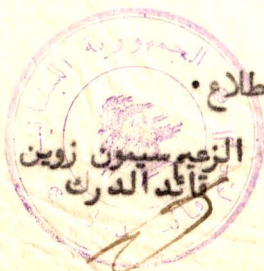 الجمهورية
طلاع .
الزعيم سيمون زوين
قائد الدرك